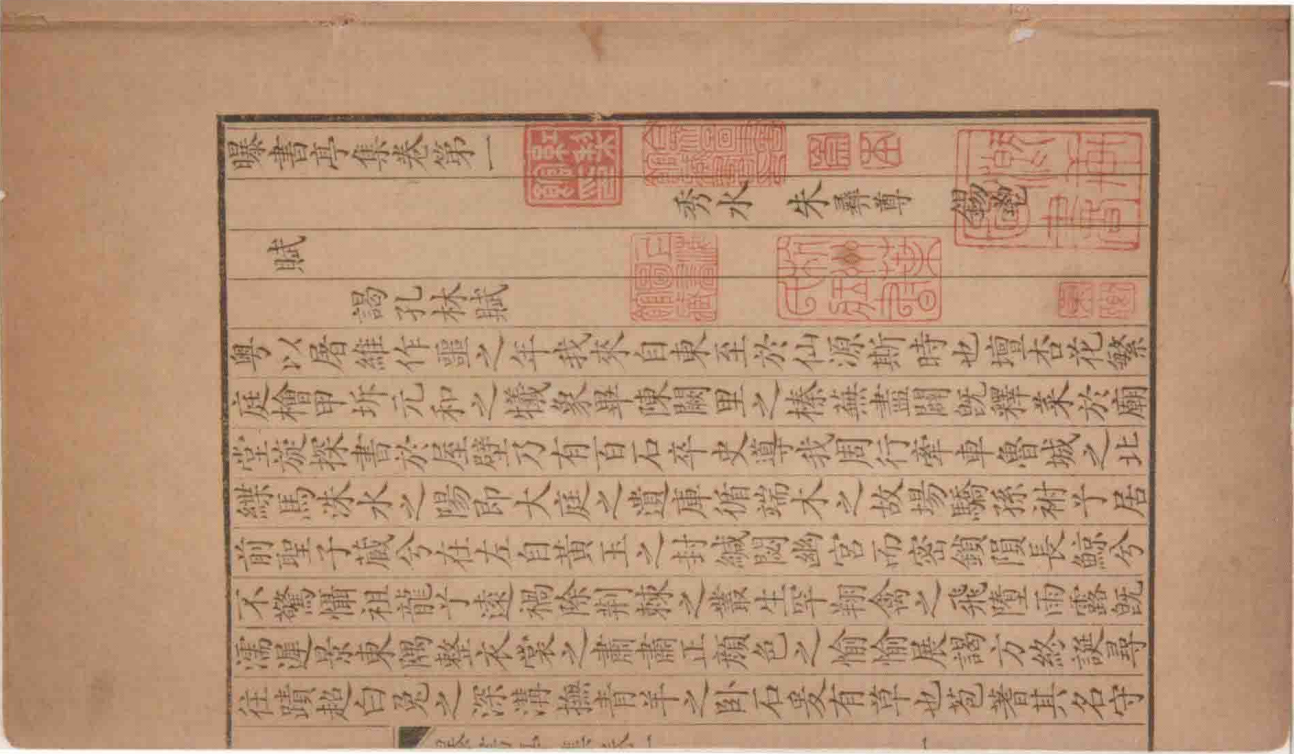 曝書亭集卷第一
秀水 朱彝尊 錫鬯
賦
謁孔林賦
粵以屠維作噩之年我來自東至於仙源斯時也壇杏花繁
庭檜甲坼元和之犧象畢陳闕里之榛蕪盡闢既釋菜於廟
堂旋探書於屋壁乃有百石卒史導我周行牽車魯城之北
緤馬洙水之陽即大庭之遺庫循端木之故場驕孫祔兮居
前聖子藏兮在左自黃玉之封緘閟幽宮而密鎖隕長鯨兮
不驚慴祖龍兮遠禍除荊棘之叢生罕翔禽之飛墮雨露既
濡遲景東隅整衣裳之肅肅正顏色之愉愉展謁方終誕尋
往蹟超白兔之深溝撫青羊之臥石爰有草也苞蓍其名守